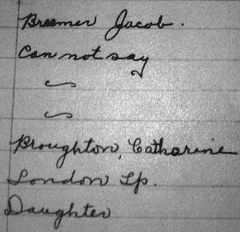 Breemer Jacob.
Can not say
〃
〃
Broughton, Catharine
London Tp.
Daughter